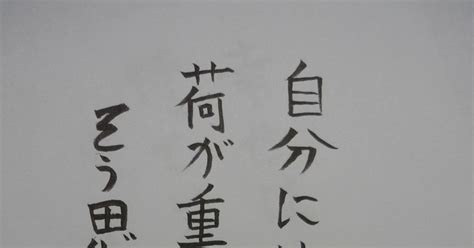 自分に
荷が重
そう